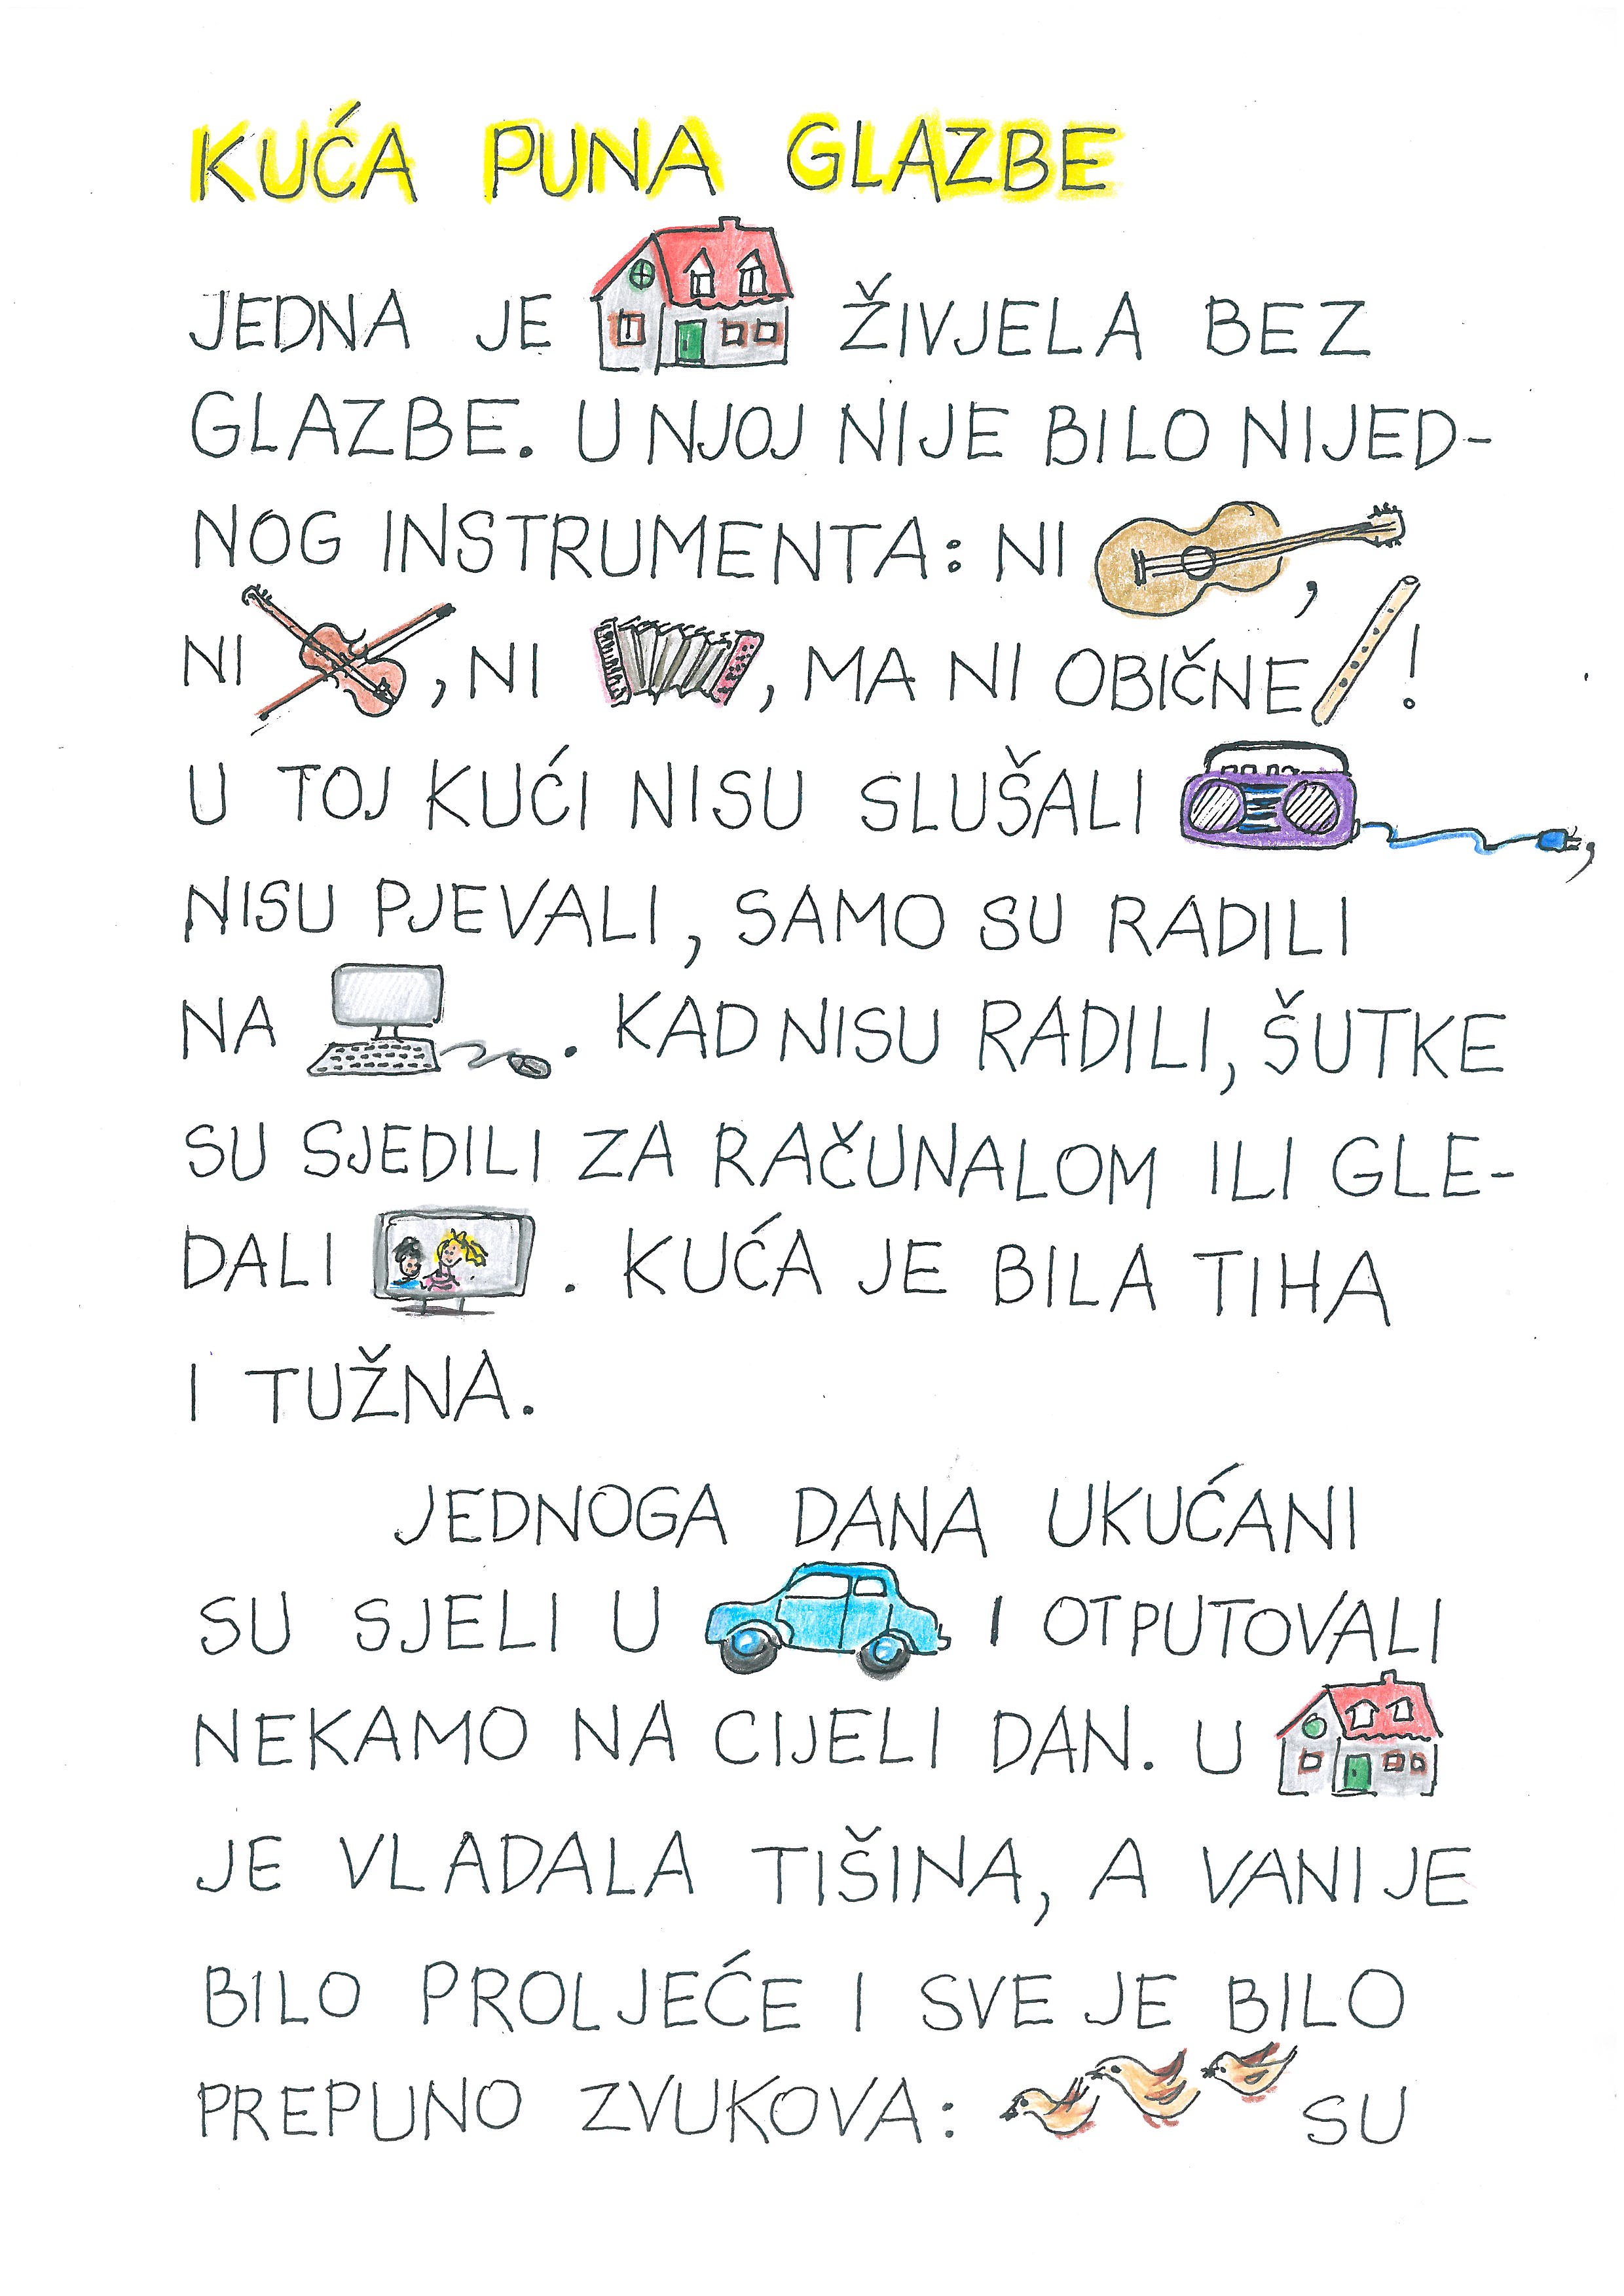 KUĆA PUNA GLAZBE
JEDNA JE ŽIVJELA BEZ
GLAZBE. U NJOJ NIJE BILO NIJED-
NOG INSTRUMENTA: NI ,
NI , NI , MA NI OBIČNE !
U TOJ KUĆI NISU SLUŠALI ,
NISU PJEVALI, SAMO SU RADILI
NA . KAD NISU RADILI, ŠUTKE
SU SJEDILI ZA RAČUNALOM ILI GLE-
DALI . KUĆA JE BILA TIHA
I TUŽNA.
JEDNOGA DANA UKUĆANI
SU SJELI U I OTPUTOVALI
NEKAMO NA CIJELI DAN. U
JE VLADALA TIŠINA, A VANI JE
BILO PROLJEĆE I SVE JE BILO
PREPUNO ZVUKOVA: SU